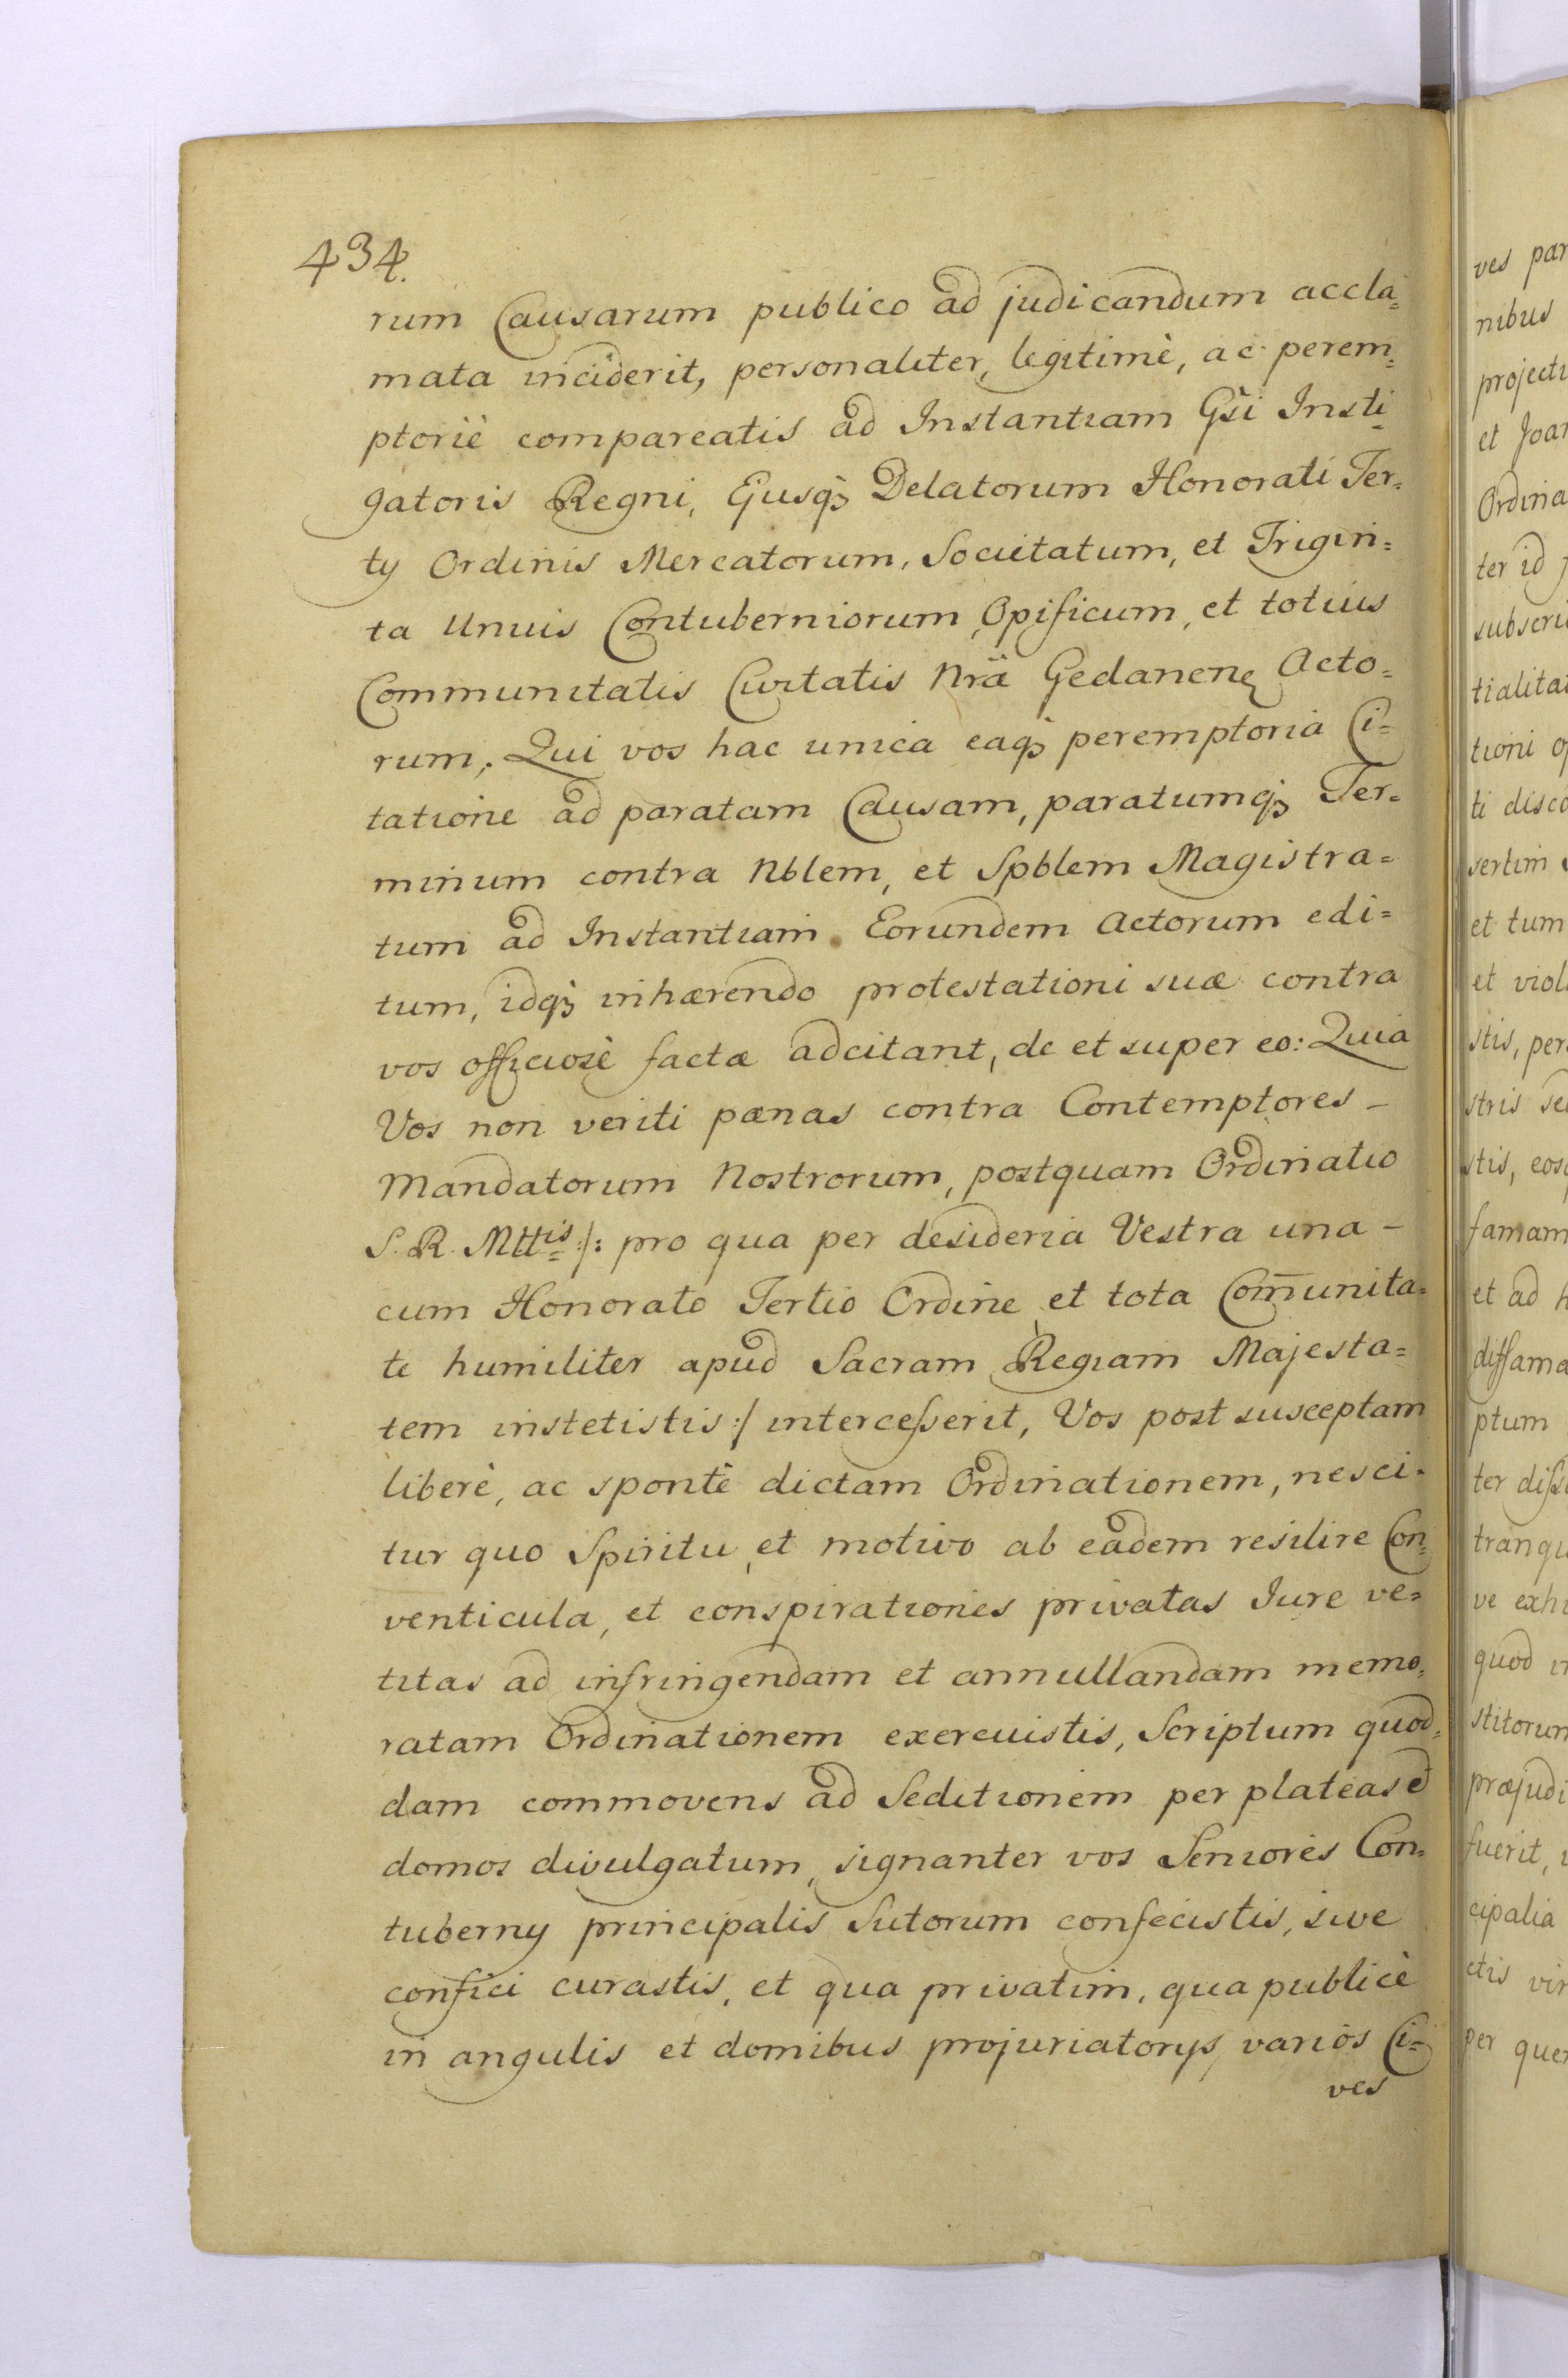 434.
rum Causarum publico ad judicandum accla=
mata inciderit, personaliter, legitimè, ac perem=
ptoriè compareatis ad Instantiam Gsi Insti=
gatoris Regni, Ejusq3 Delatorum Honorati Ter=
tÿ Ordinis Mercatorum, Societatum, et Trigin=
ta Unius Contuberniorum, Opificum, et totius
Communitatis Civitatis Nræ Gedanen Acto=
rum; Qui vos hac unica eaq3 peremptoria Ci=
tatione ad paratam Causam, paratumq3 Ter=
minum contra Nblem, et Spblem Magistra=
tum ad Instantiam Eorundem Actorum edi=
tum, idq3 inhærendo protestationi suæ contra
vos officiosè factæ adcitant, de et super eo: Quia
Vos non veriti pænas contra Contemptores -
Mandatorum Nostrorum, postquam Ordinatio
S. R. Mttis /: pro qua per desideria Vestra una -
cum Honorato Tertio Ordine et tota Com̄unita=
te humiliter apud Sacram Regiam Majesta=
tem institistis :/ intercesserit, Vos post susceptam
liberè, ac spontè dictam Ordinationem, nesci=
tur quo Spiritu, et motivo ab eadem resilire Con=
venticula, et conspirationes privatas Jure ve=
titas ad infringendam et annullandam memo=
ratam Ordinationem exercuistis, Scriptum quod=
dam commovens ad Seditionem per plateas et
domos divulgatum, signanter vos Seniores Con=
tubernÿ principalis Sutorum confecistis, sive
confici curastis, et qua privatim, qua publicè
in angulis et domibus projuriatorÿs, varios Ci=
ves
ves par
nibus
projecti
et Joan
Ordina
ter id
subscri
tialita
tioni op
ti disco
sertim
et tum
et viol
stis, per
stris se
stis, eosq
famam
et ad h
diffama
ptum
ter dissi
tranqui
ve exhi
quod in
stitorum
præjudi
fuerit,
cipalia
ctis vir
per quer